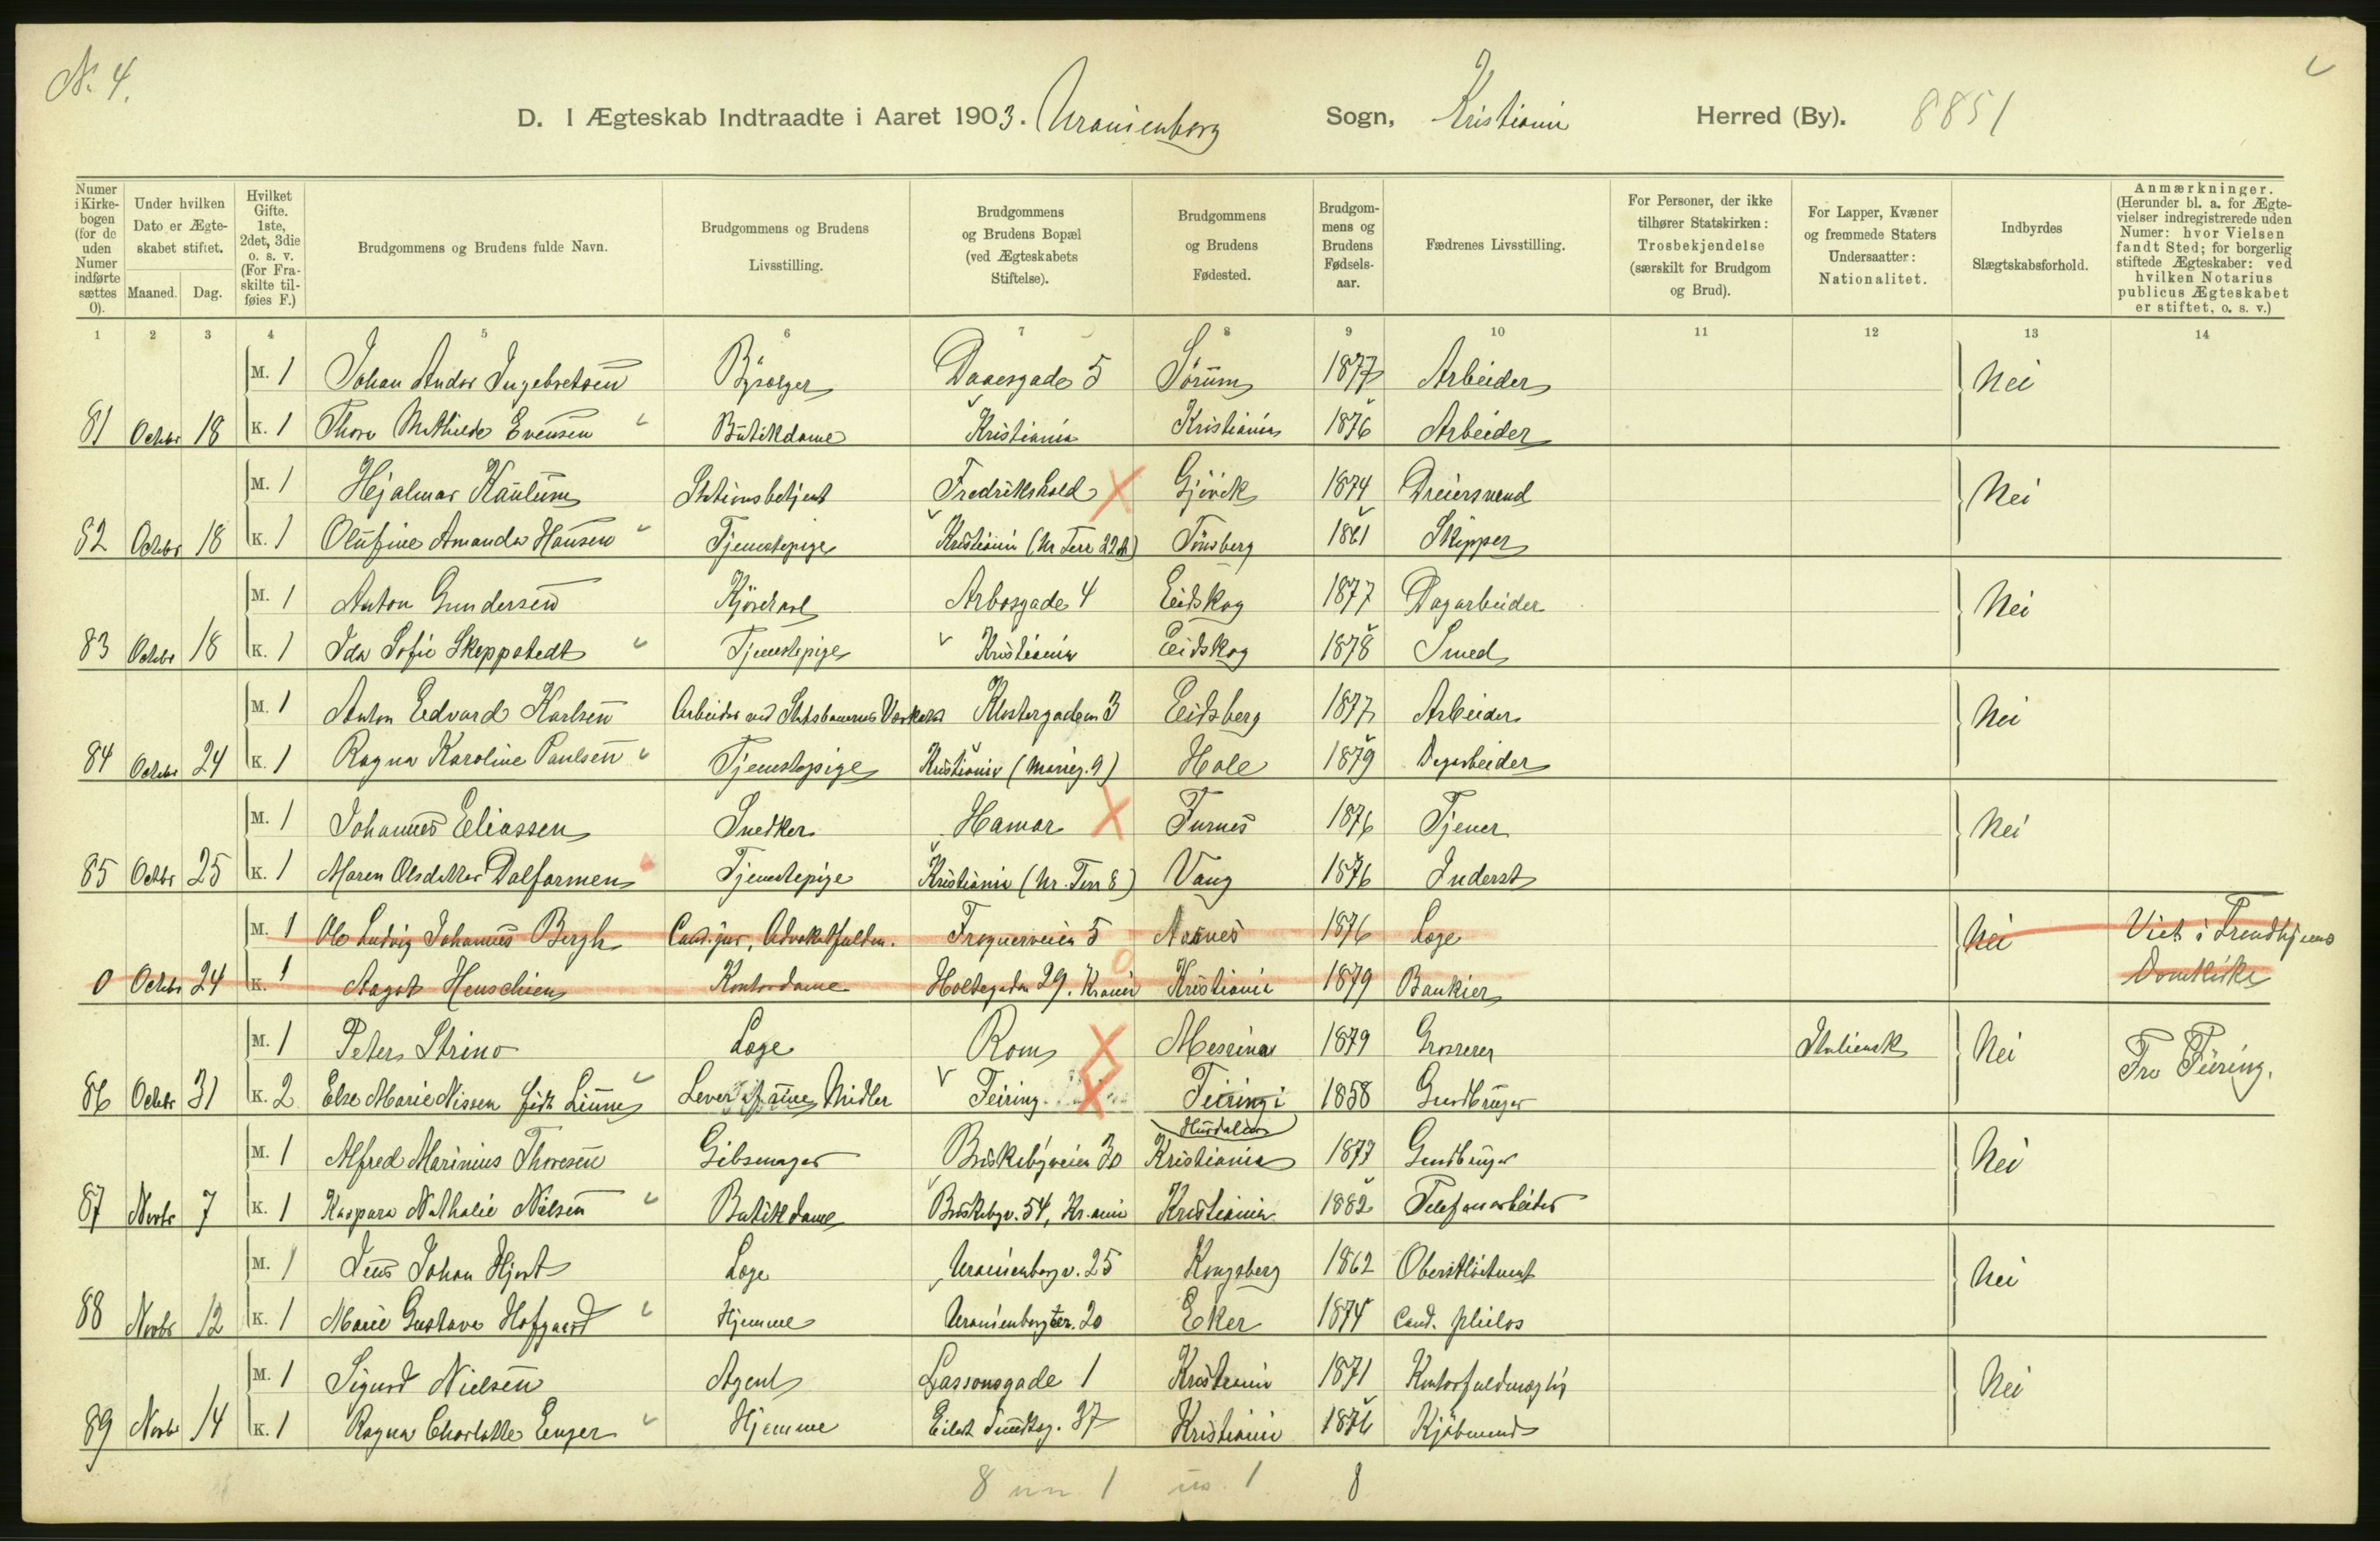 No. 4.
D. I Ægteskab Indtraadte i Aaret 1903. Uranienborg Sogn, Kristiania Herred (By). 8851
Numer i Kirkebogen (for de uden Numer indførte sættes 0).
Under hvilken Dato er Ægteskabet stiftet. Maaned. Dag.
Hvilket Gifte. 1ste, 2det, 3die o. s. v. (For Fraskilte tilføies F.)
Brudgommens og Brudens fulde Navn.
Brudgommens og Brudens Livsstilling.
Brudgommens og Brudens Bopæl (ved Ægteskabets Stiftelse).
Brudgommens og Brudens Fødested.
Brudgommens og Brudens Fødselsaar.
Fædrenes Livsstilling.
For Personer, der ikke tilhører Statskirken: Trosbekjendelse (særskilt for Brudgom og Brud).
For Lapper, Kvæner og fremmede Staters Undersaatter: Nationalitet.
Indbyrdes Slægtskabsforhold.
Anmærkninger. (Herunder bl. a. for Ægtevielser indregistrerede uden Numer: hvor Vielsen fandt Sted; for borgerlig stiftede Ægteskaber: ved hvilken Notarius publicus Ægteskabet er stiftet, o. s. v.)
1 2 3 4 5 6 7 8 9 10 11 12 13 14
M. 1 Johan Andor Ingebretsen Daaesgade 5 Sørum 1877 Arbeider Nei
81 Octbr 18 K. 1 Thora Mathilde Evensen Butikdame Kristiania Kristiania 1876 Arbeider
M. 1 Hjalmar Kaulum Stationsbetjent Fredrikshald Gjövik 1874 Dreiersvend Nei
82 Octbr 18 K. 1 Olufine Amanda Hansen Tjenestepige Kristiania (Ur Terr 22) Tönsberg 1861 Skipper
M. 1 Anton Gundersen Kjörekarl Arbosgade 4 Eidskog 1877 Dagarbeider Nei
83 Octbr 18 K. 1 Ida Sofie Skeppstedt Tjenestepige Kristiania Eidskog 1878 Smed
M. 1 Anton Edvard Karlsen Arbeider ved Statsbanernes Værksted Klostergaden 3 Eidsberg 1877 Arbeider Nei
84 Octbr 24 K. 1 Ragna Karoline Paulsen Tjenestepige Kristiania Hole 1879 Dagarbeider
M. 1 Johannes Eliassen Snedker Hamar Furnes 1876 Tjener Nei
85 Octbr 25 K. 1 Maren Olsdatter Dalfarmen Tjenestepige Kristiania (Ur. Terr 8) Vang 1876 Inderst
M. 1 Ole Ludvig Johannes Bergh Cand. jur, Advokatfuldm. Frognerveien 5 Aasnes 1876 Læge Nei Viet i Trondhjems
0 Octbr 24 K. 1 Aagot Henschien Kontordame Holtegaden 29. Krania Kristiania 1879 Bankier Domkirke
M. 1 Peter Strino Læge Rom Messina 1879 Grosserer Italiensk Nei Fra Feiring.
86 Octbr 31 K. 2 Else Marie Nissen født Linne Lever af sine Midler Feiring Feiring i 1858 Gaardbruger
Hurdalen
M. 1 Alfred Marinius Thoresen Gibsmager Briskebyveien 30 Kristiania 1877 Gaardbruger Nei
87 Novbr 7 K. 1 Kaspara Nathalie Nielsen Butikdame Briskebyv. 54, Kr.ania Kristiania 1882 Telefonarbeider
M. 1 Jens Johan Hjort Læge Uranienborgv. 25 Kongsberg 1862 Oberstløitnant Nei
88 Novbr 12 K. 1 Marie Gustava Hofgaard Hjemme Uranienborgter. 20 Eker 1874 Cand. philos
M. 1 Sigurd Nielsen Agent Lassonsgade 1 Kristiania 1871 Kontorfuldmægtig Nei
89 Novbr 14 K. 1 Ragna Charlotte Enger Hjemme Eilert Sundtsg. 37 Kristiania 1876 Kjøbmand
8 1 1 8